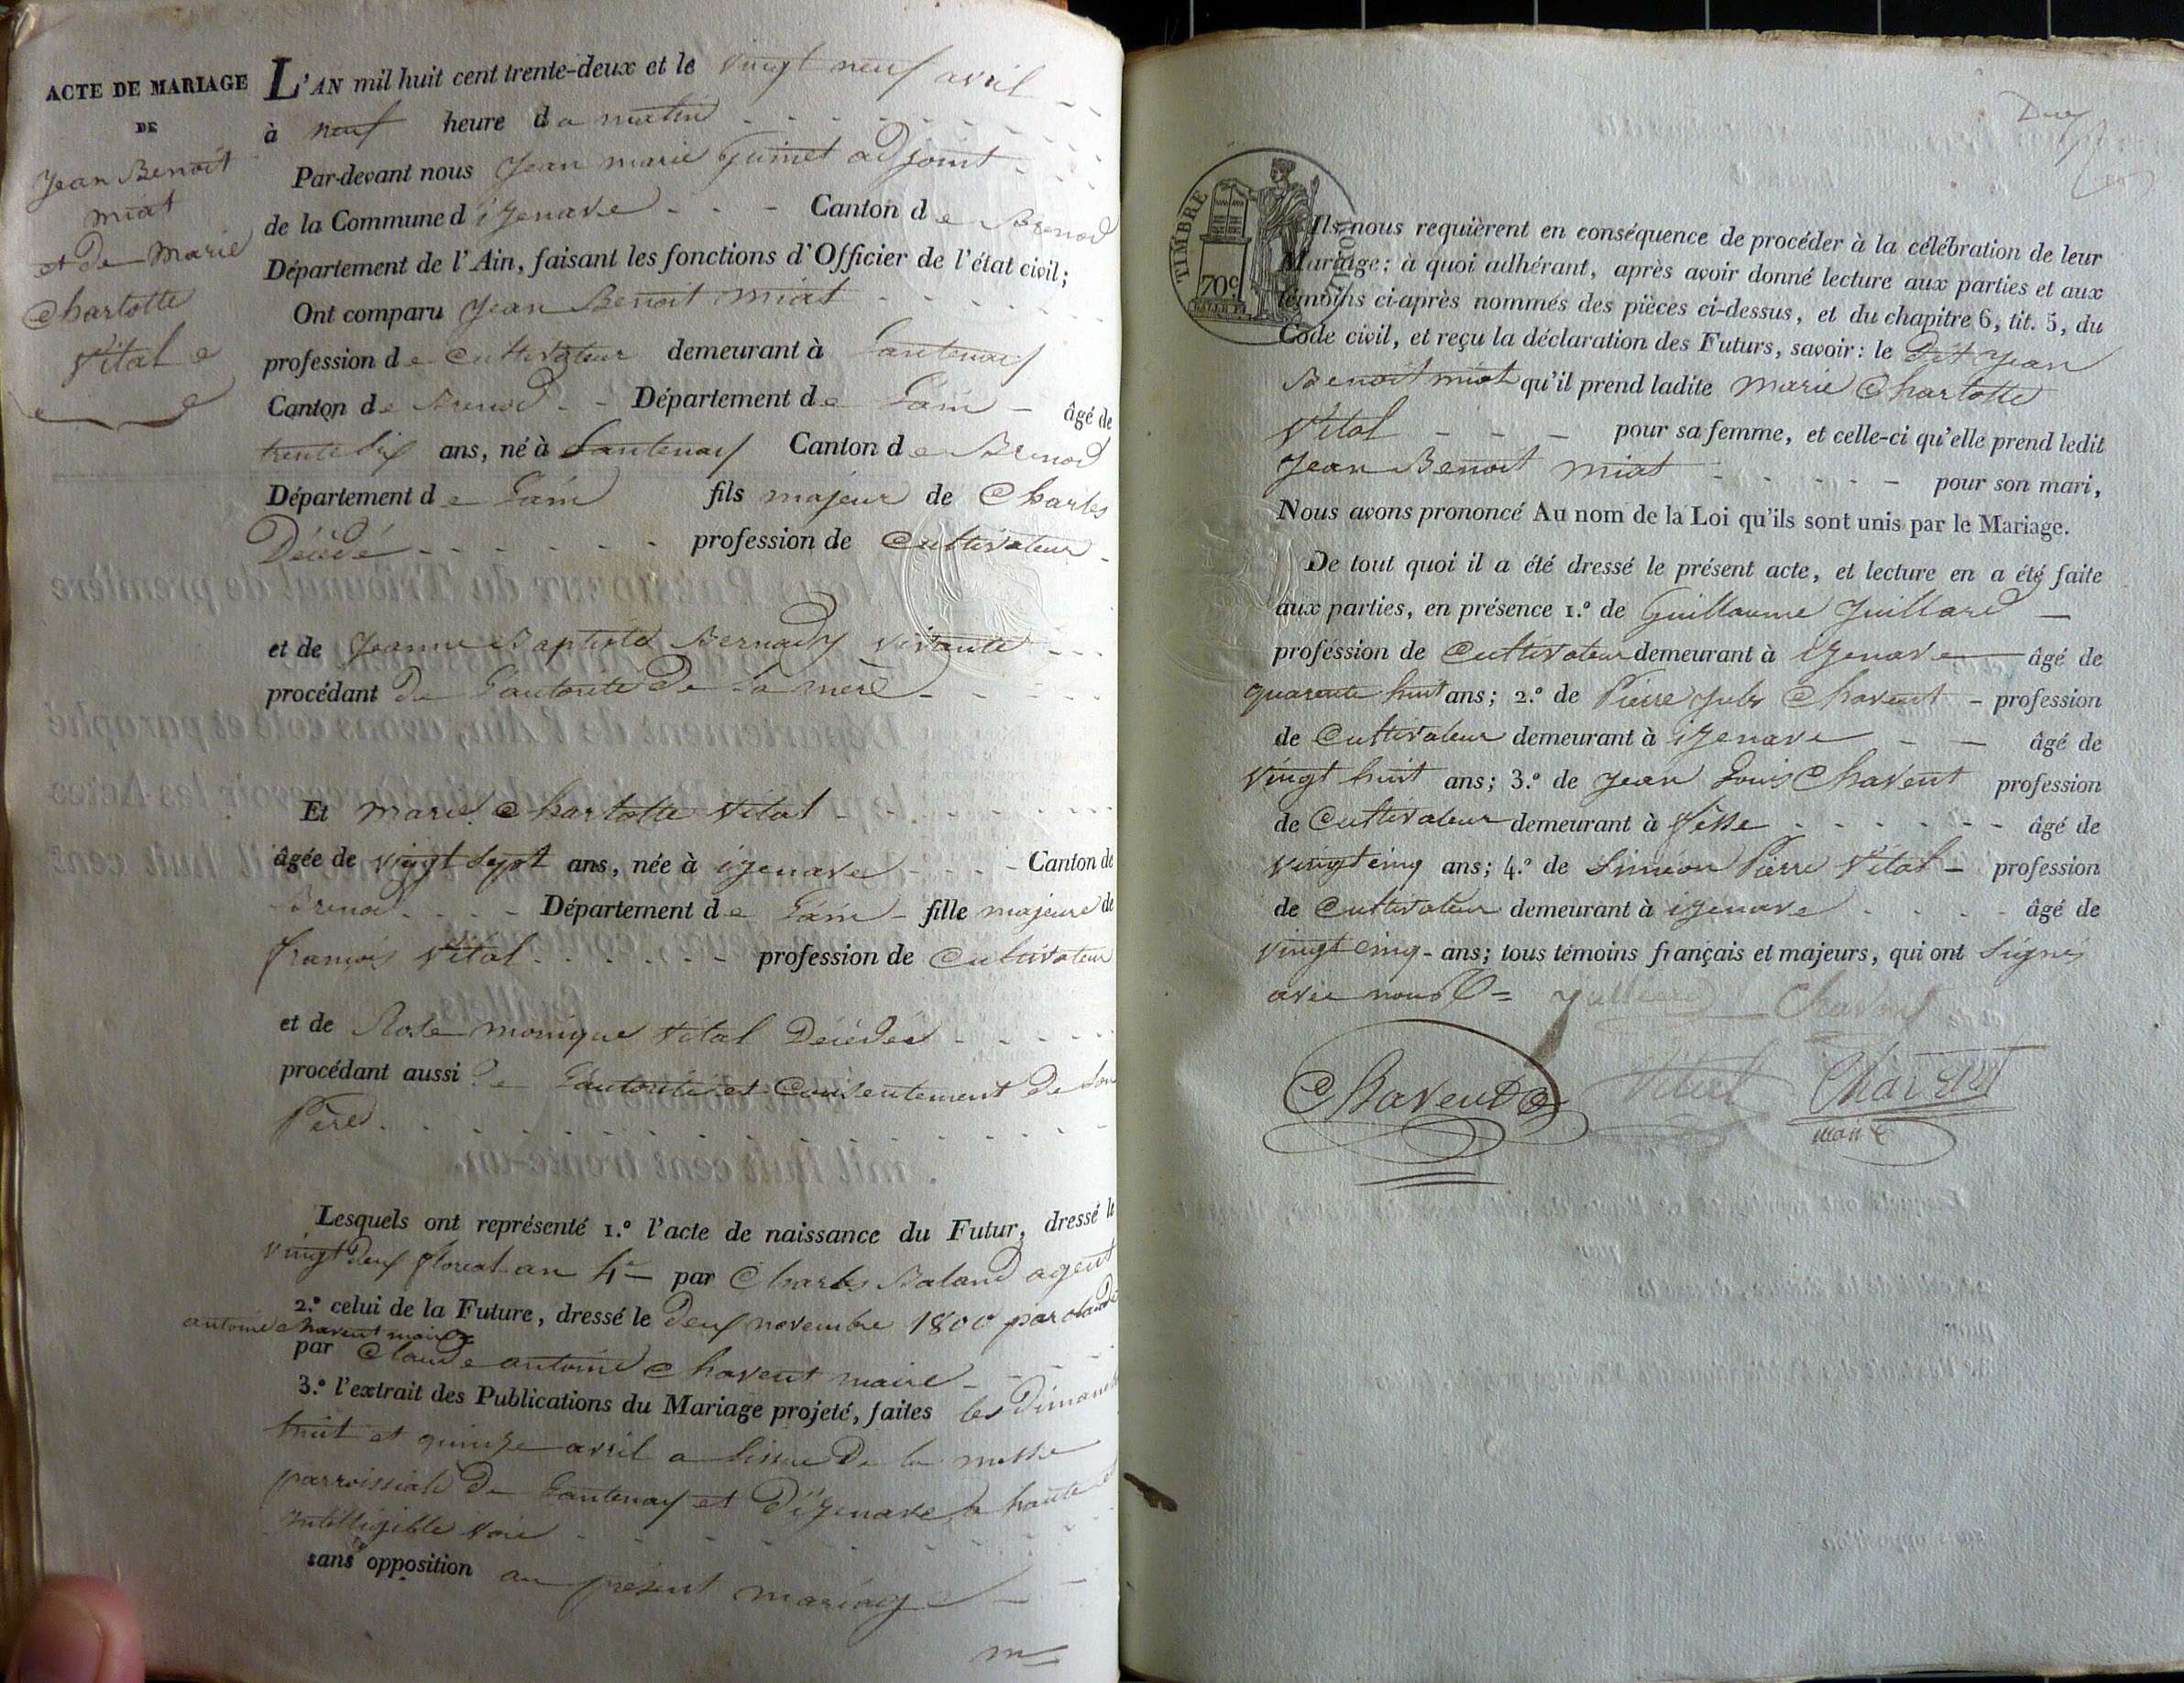 ACTE DE MARIAGE
DE
Jean Benoit
miat
et de Marie
Charlotte
Vital
L'AN mil huit cent trente-deux et le vingt neuf avril
à neuf heure du matin
Par-devant nous Jean marie Guinet adjoint
de la Commune d izenave Canton de Brenod
Département de l'Ain, faisant les fonctions d'Officier de l'état civil;
Ont comparu Jean Benoit miat
profession de Cultivateur demeurant à Lantenay
Canton de Brenod Département de Lain âgé de
trente six ans, né à Lantenay Canton de Brenod
Département de Lain fils majeur de Charles
Décédé profession de Cultivateur
et de Jeanne Baptiste vivante
procédant de Lautorité de la mere
Et marie Charlotte Vital
âgée de vingt sept ans, née à izenave Canton de
Brenod Département de Lain fille majeure de
françois Vital profession de Cultivateur
et de Rose monique Vital Décédée
procédant aussi de Lautorité et Consentement de son
Père
Lesquels ont représenté 1.º l'acte de naissance du Futur, dressé le
vingt deux floreal an 4e par Charles Baland agent
2.º celui de la Future, dressé le deux novembre 1800 par claude
antoine chavent maire
par Claude antoine Chavent maire
3.º l'extrait des Publications du Mariage projeté, faites les Dimanche
huit et quinze avril a Lissue De la messe
parroissiale De Lantenay et D'izenave a haute et
intelligible voie
sans opposition au présent mariage
TIMBRE
70c
Ils nous requièrent en conséquence de procéder à la célébration de leur
Mariage; à quoi adhérant, après avoir donné lecture aux parties et aux
témoins ci-après nommés des pièces ci-dessus, et du chapitre 6, tit. 5, du
Code civil, et reçu la déclaration des Futurs, savoir: le dit Jean
Benoit miat qu'il prend ladite Marie Charlotte
Vital pour sa femme, et celle-ci qu'elle prend ledit
Jean Benoit miat pour son mari,
Nous avons prononcé Au nom de la Loi qu'ils sont unis par le Mariage.
De tout quoi il a été dressé le présent acte, et lecture en a été faite
aux parties, en présence 1.º de Guillaume Juillard
profession de Cultivateur demeurant à izenave âgé de
quarente huit ans; 2.º de Pierre Jules Chavent profession
de Cultivateur demeurant à izenave âgé de
vingt huit ans; 3.º de Jean Louis Chavent profession
de Cultivateur demeurant à âgé de
vingt cinq ans; 4.º de Siméon Pierre Vital profession
de Cultivateur demeurant à izenave âgé de
vingt cinq ans; tous témoins français et majeurs, qui ont Signés
avec nous Chavent
Chavent Vital Chavent